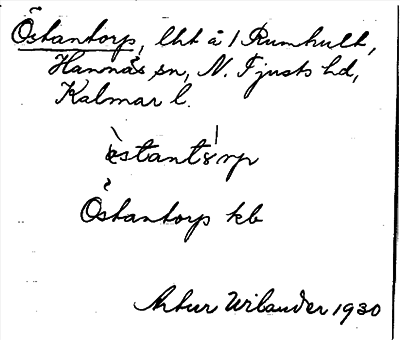 Östantorp, lht å 1 Rumhult,
Hannäs sn, N. Tjusts hd,
Kalmar l.
Östantorp kb
Artur Wilander 1930